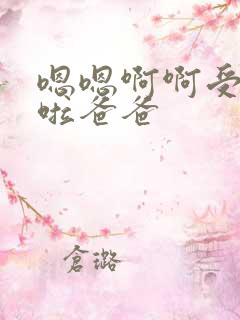 嗯嗯啊啊受
啦爸爸
倉璐